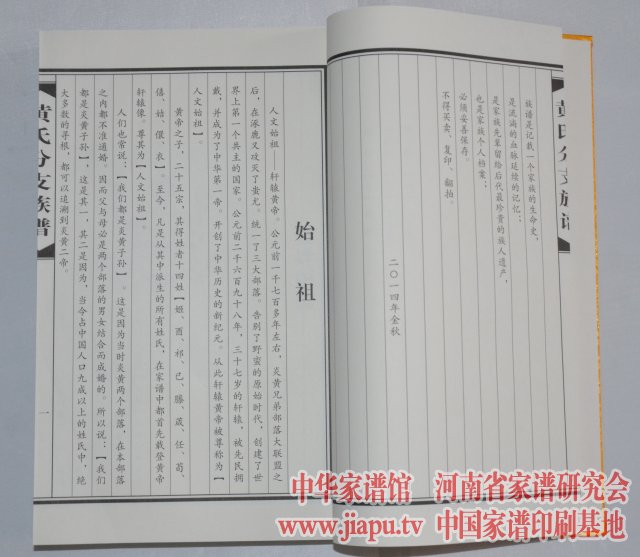 黄氏分支族谱
族谱是记载一个家族的生命史，
是流淌的血脉延续的记忆；
是家族先辈留给后代最珍贵的族人遗产，
也是家族个人档案；
必须妥善保存，
不得买卖、复印、翻拍。
二〇一四年金秋
始祖
人文始祖——轩辕黄帝。公元前一千七百多年左右，炎黄兄弟部落大联盟之
后，在涿鹿又攻灭了蚩尤。统一了三大部落。告别了野蛮的原始时代，创建了世
界上第一个共主的国家。公元前二千六百九十八年，三十七岁的轩辕，被先民拥
戴，并成为了中华第一帝。开创了中华历史的新纪元。从此轩辕黄帝被尊称为【
人文始祖】。
黄帝之子，二十五宗，其得姓者十四姓【姬、酉、祁、己、滕、葴、任、荀、
僖、姞、儇、衣】。至今，凡是从其中派生的所有姓氏，在家谱中都首先载登黄帝
轩辕像。尊其为【人文始祖】。
人们也常说：【我们都是炎黄子孙】。这是因为当时炎黄两个部落，在本部落
之内都不准通婚。因而父与母必是两个部落的男女结合而成婚的。所以说：【我们
都是炎黄子孙】，这是其一，其二是因为，当今占中国人口九成以上的姓氏中，绝
大多数的寻根，都可以追溯到炎黄二帝。
黄氏分支族谱
一
中华家谱馆 河南省家谱研究会
www.jiapu.tv 中国家谱印刷基地